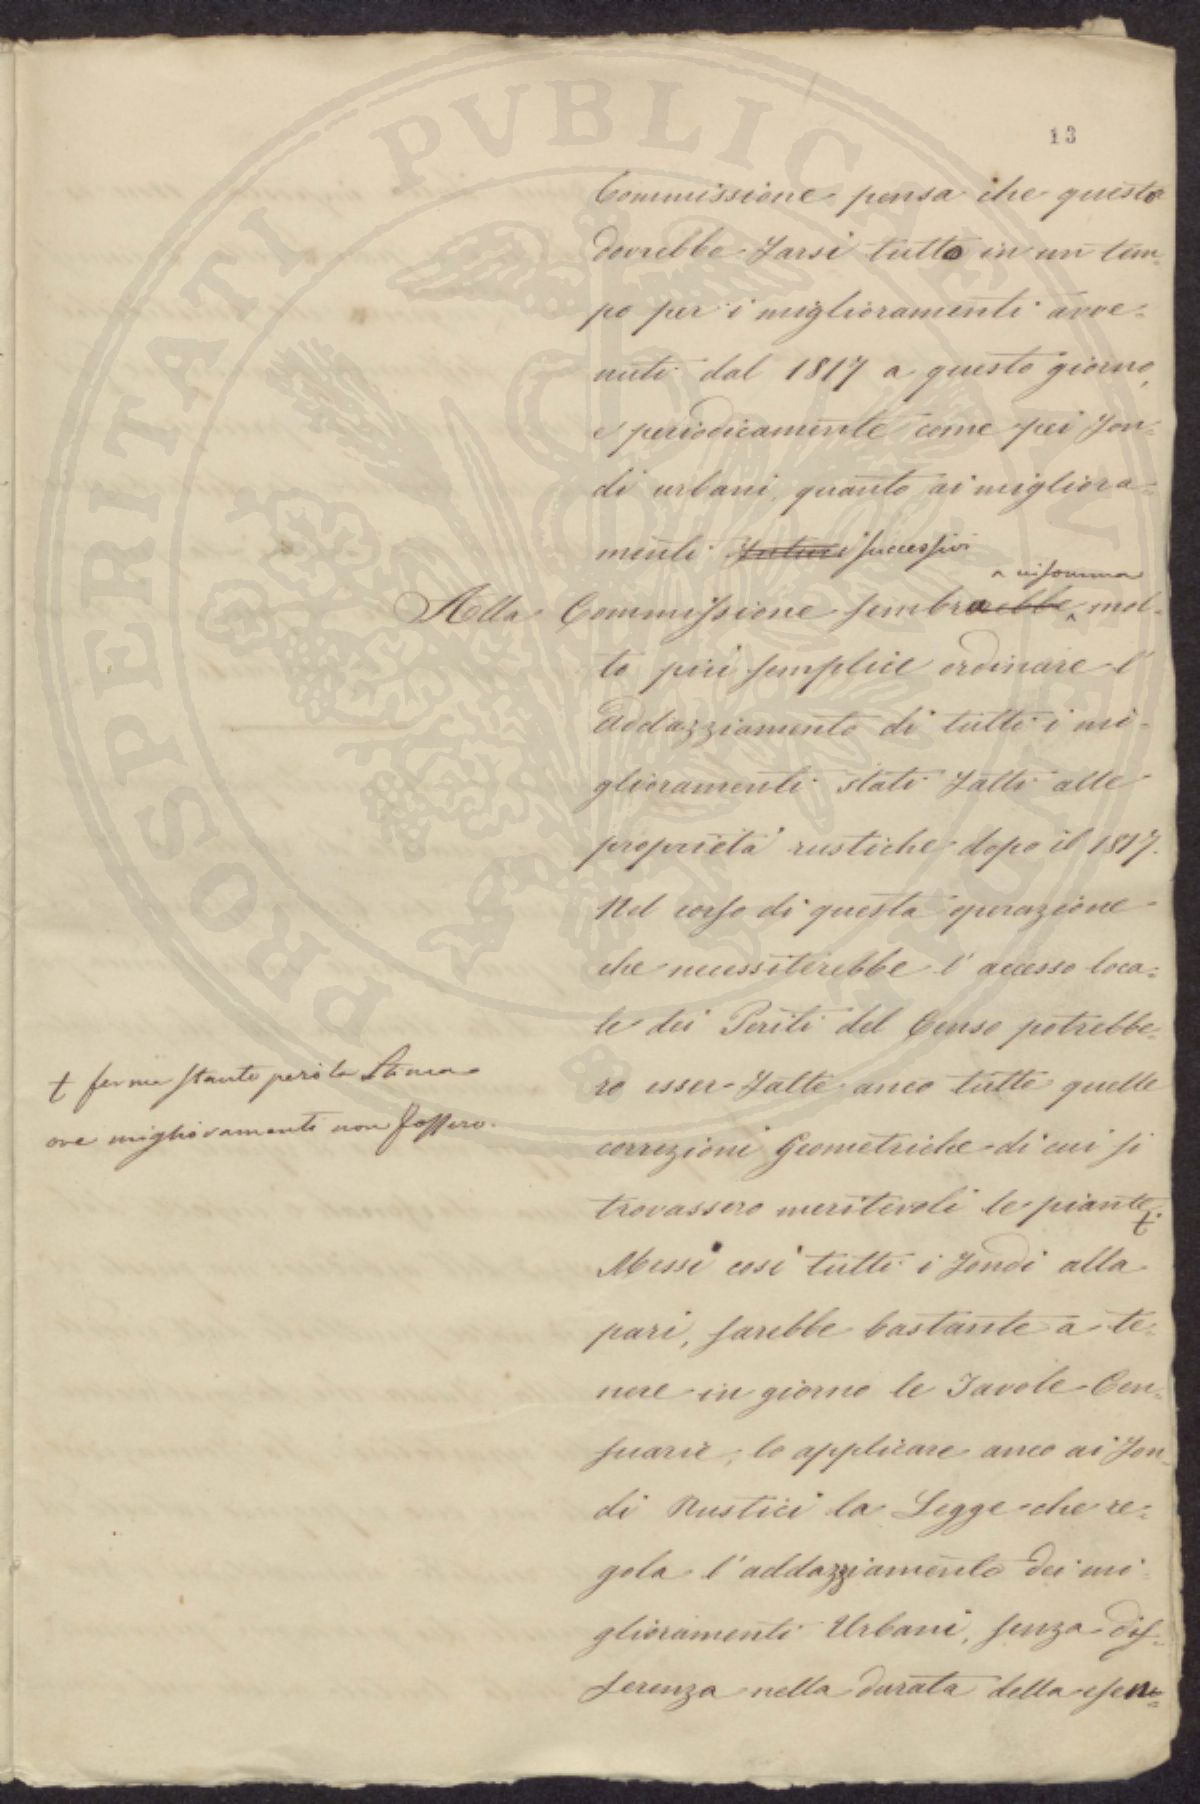 PROSPERITATI PVBLICAE
13
Commissione pensa che questo
dovrebbe farsi tutto in un tem-
po per i miglioramenti avve-
nuti dal 1817 a questo giorno,
e periodicamente come pei fon-
di urbani, quanto ai migliora-
menti futuri successivi
a insomma
Alla Commissione sembrarebbe mol-
to più semplice ordinare l'
addazziamento di tutti i mi-
glioramenti stati fatti alle
proprietà rustiche dopo il 1817.
Nel corso di questa operazione
che necessiterebbe l'accesso loca-
le dei Periti del Censo potrebbe-
ro esser fatte anco tutte quelle
correzioni Geometriche di cui si
trovassero meritevoli le piante t.
t ferma stante però la Stima
ove miglioramenti non fossero.
Messi così tutti i fondi alla
pari, sarebbe bastante a te-
nere in giorno le Tavole Cen-
suarie, lo applicare anco ai fon-
di Rustici la Legge che re-
gola l'addazziamento dei mi-
glioramenti Urbani, senza dif-
ferenza nella durata della esen-